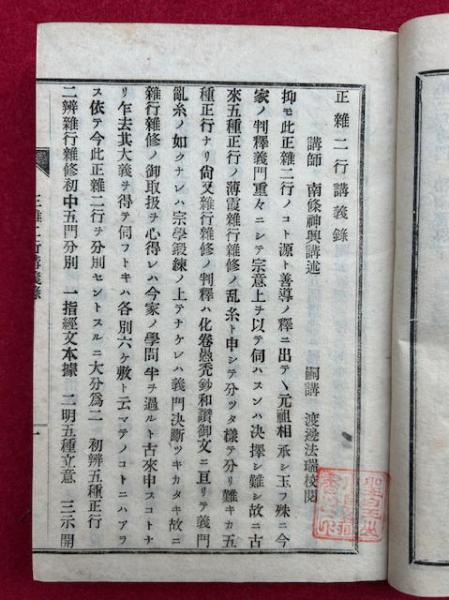 正雜二行講義錄
講師 南條神興講述 嗣講 渡邊法瑞校閱
抑モ此正雜二行ノコト源ト善導ノ釋ニ出テヽ元祖相承シ玉フ殊ニ今
家ノ判釋義門重々ニシテ宗意上ヲ以テ伺ハスンハ決擇シ難シ故ニ古
來五種正行ノ薄霞雜行雜修ノ乱糸ト申シテ分ツタ樣テ分リ難キカ五
種正行ナリ尙又雜行雜修ノ判釋ハ化卷愚禿鈔和讚御文ニ亘リテ義門
亂糸ノ如クナレハ宗學鍛練ノ上テナケレハ義門決斷ツキカタキ故ニ
雜行雜修ノ御取扱ヲ心得レハ今家ノ學問半ヲ過ルト古來申スコトナ
リ乍去其大義ヲ得テ伺フトキハ各別六ケ敷ト云マテノコトニハアラ
ス依テ今此正雜二行ヲ分別セントスルニ大分爲二 初辨五種正行
二辨雜行雜修初中五門分別 一指經文本據 二明五種立意 三示開
正雜二行講義錄
一